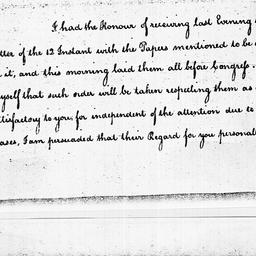 I had the Honour of receiving last Evening
tter of the 12 Instant with the Papers mentioned to be
it, and this morning laid them all before Congress.
yself that such order will be taken respecting them as
tisfactory to you, for independent of the attention due to
ases, I am persuaded that their Regard for you personal